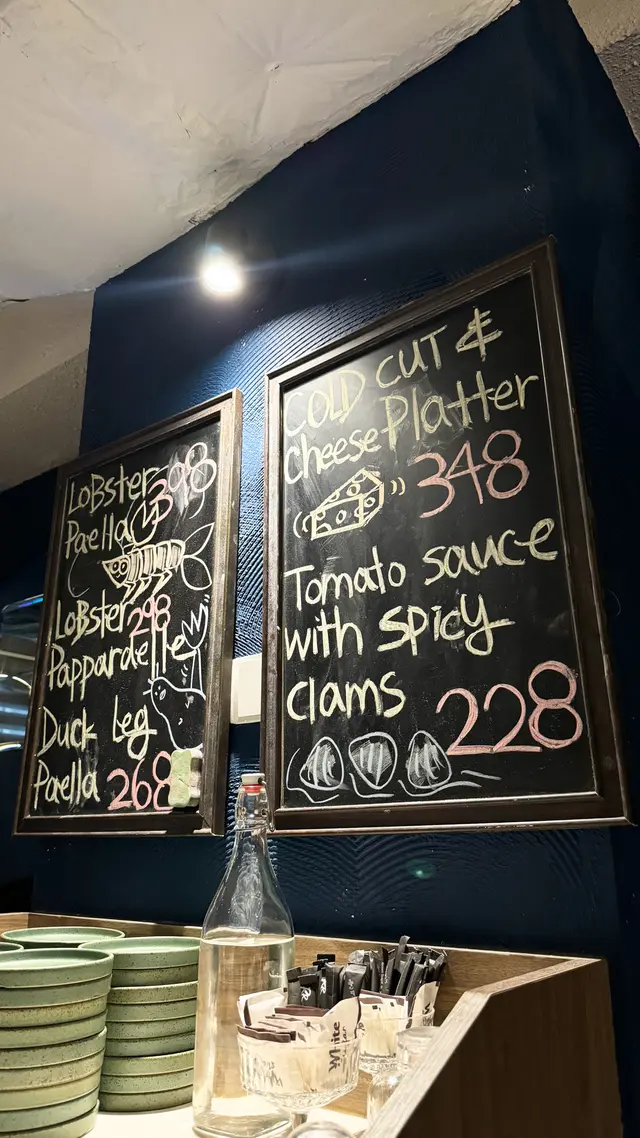 LoBster 398
Paella
LoBster 298
Pappardelle
Duck Leg
Paella 268
COLD CUT &
Cheese Platter
348
Tomato sauce
with spicy
clams
228
White